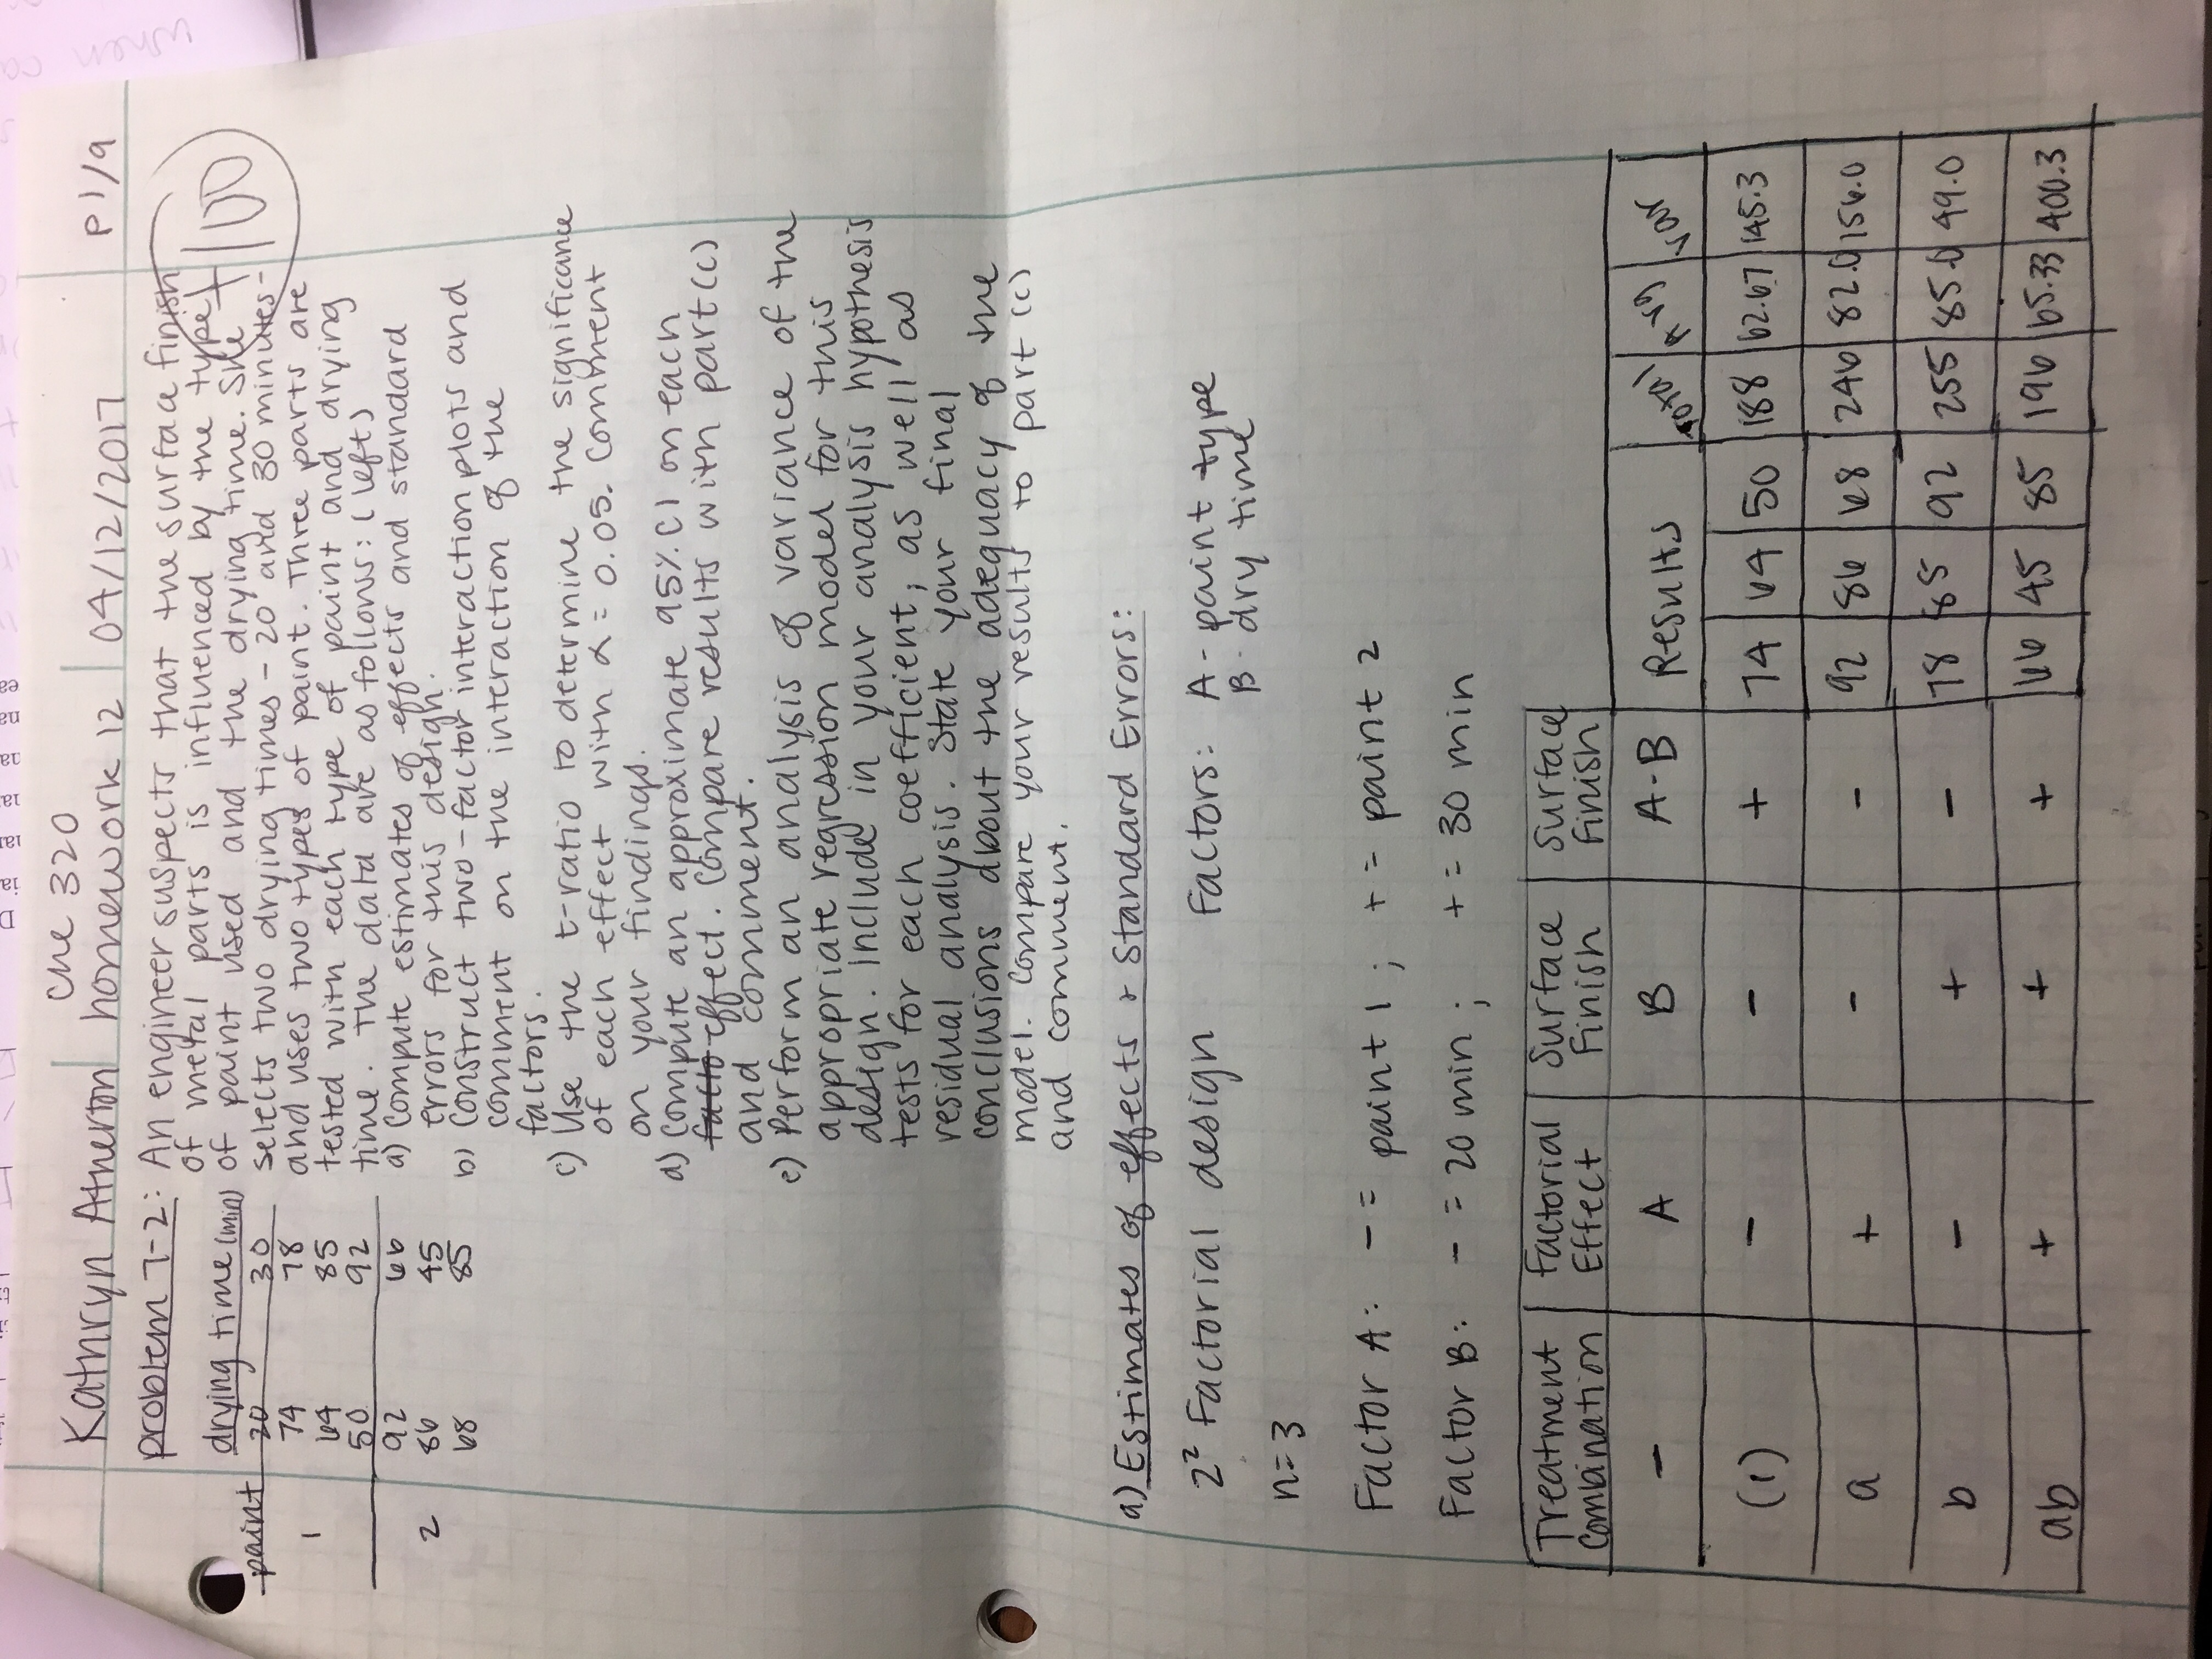 Kathryn Atherton
che 320
homework 12
04/12/2017
p1/9
+100
problem 7-2: An engineer suspects that the surface finish
of metal parts is influenced by the type
of paint used and the drying time. She
selects two drying times - 20 and 30 minutes -
and uses two types of paint. Three parts are
tested with each type of paint and drying
time. The data are as follows: (left)
drying time (min)
paint 20 30
74 78
1 64 85
50 92
92 66
2 86 45
68 85
a) Compute estimates of effects and standard
errors for this design.
b) Construct two-factor interaction plots and
comment on the interaction of the
factors.
c) Use the t-ratio to determine the significance
of each effect with α = 0.05. Comment
on your findings.
d) Compute an approximate 95% CI on each
facto effect. Compare results with part (c)
and comment.
e) Perform an analysis of variance of the
appropriate regression model for this
design. Include in your analysis hypothesis
tests for each coefficient, as well as
residual analysis. State your final
conclusions about the adequacy of the
model. Compare your results to part (c)
and comment.
a) Estimates of effects & Standard Errors:
2² Factorial design Factors: A - paint type
B - dry time
n=3
Factor A: - = paint 1 ; + = paint 2
Factor B: - = 20 min ; + = 30 min
Treatment Combination Factorial Effect Surface Finish Surface Finish
- A B A-B Results Total Avg Var
(1) - - + 74 64 50 188 62.67 145.3
a + - - 92 86 68 246 82.0 156.0
b - + - 78 85 92 255 85.0 49.0
ab + + + 66 45 85 196 65.33 400.3